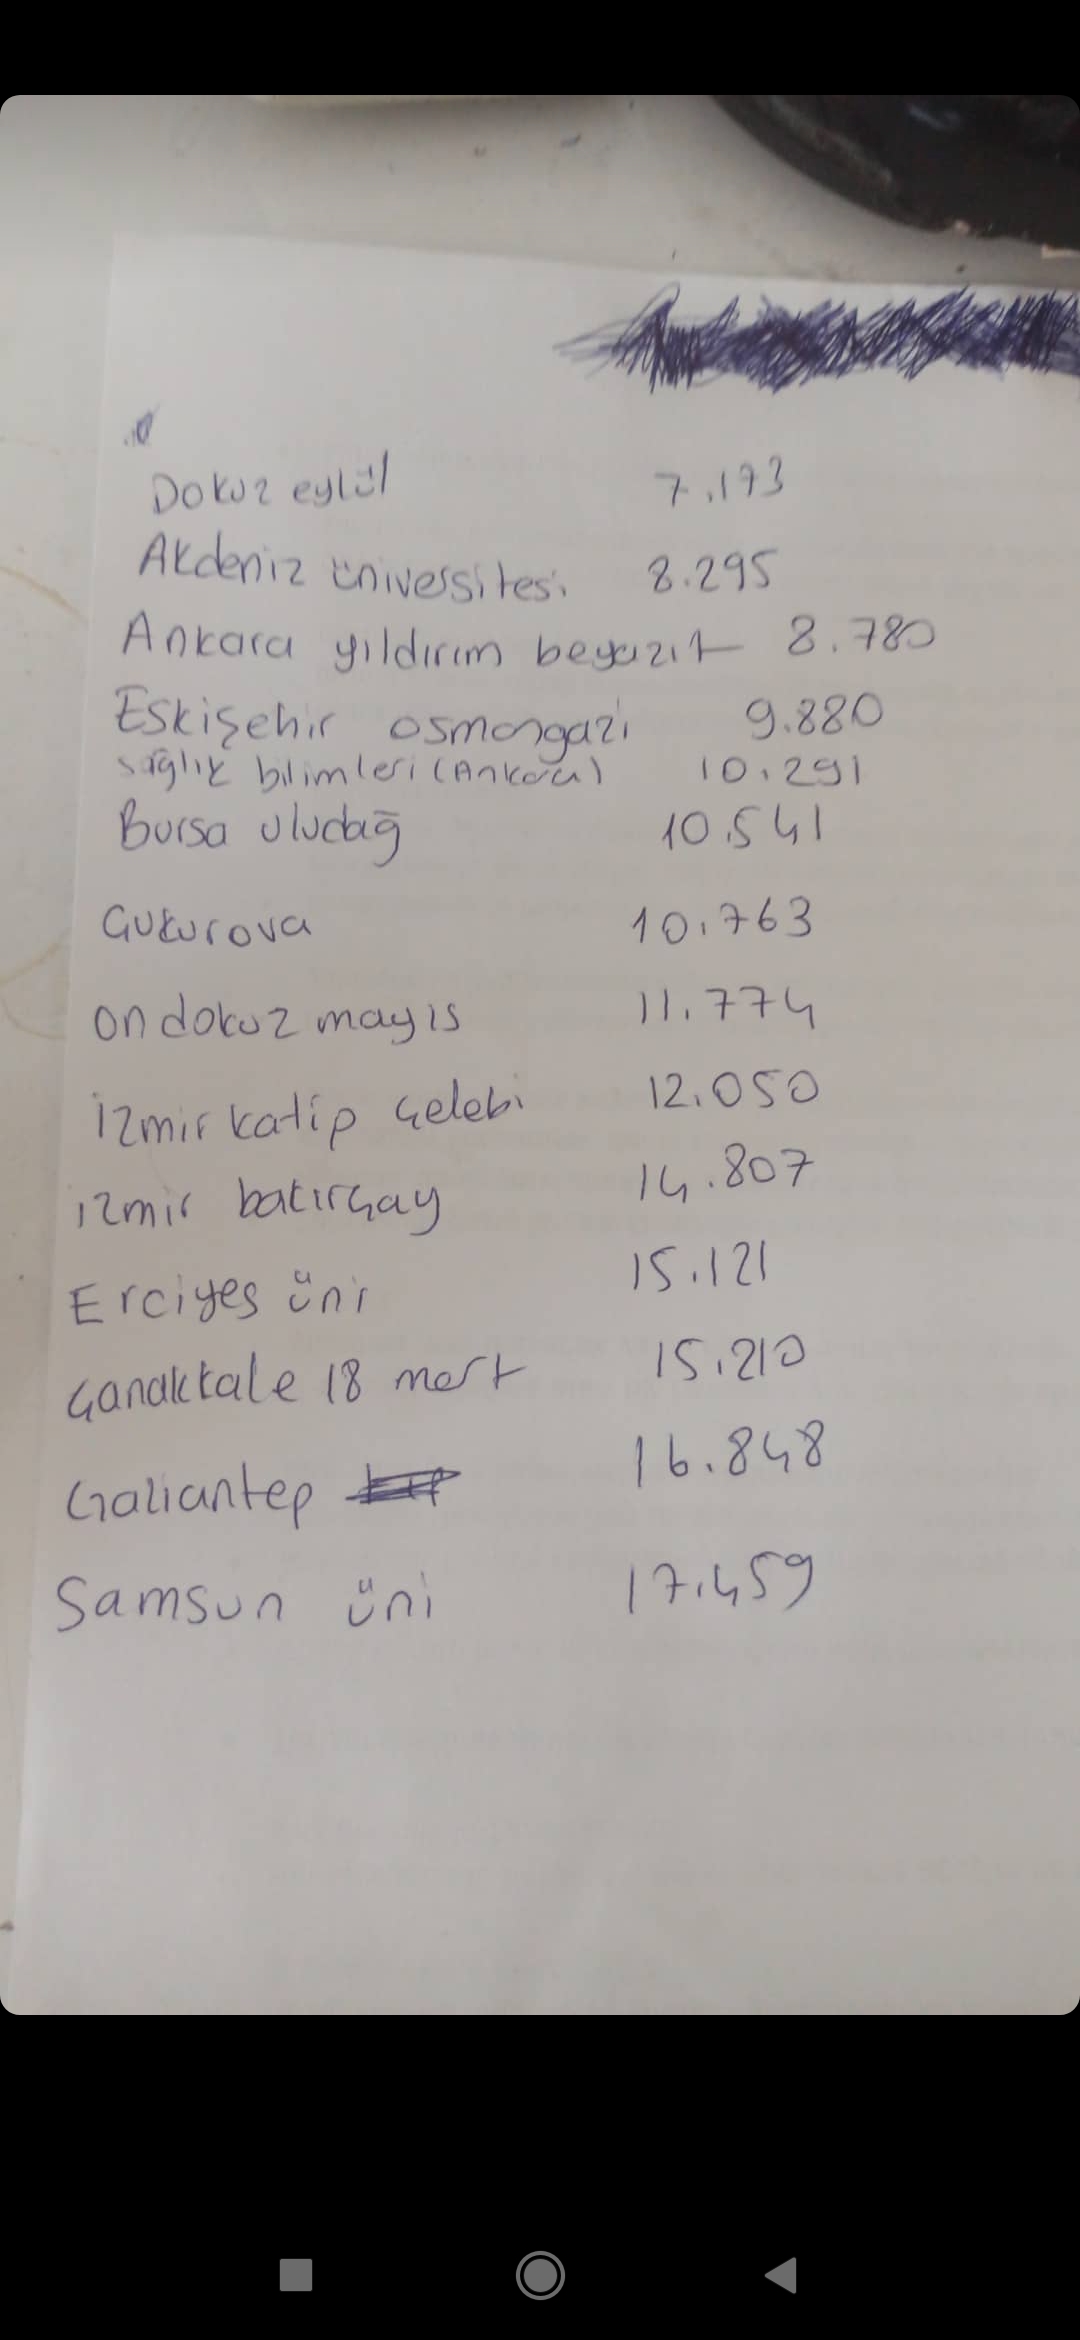 Dokuz eylül 7.173
Akdeniz üniversitesi 8.295
Ankara yıldırım beyazıt 8.780
Eskişehir osmangazi 9.880
sağlık bilimleri (Ankara) 10.291
Bursa uludağ 10.541
Çukurova 10.763
on dokuz mayıs 11.774
izmir katip çelebi 12.050
izmir bakırçay 14.807
Erciyes üni 15.121
çanakkale 18 mart 15.210
Gaziantep 16.848
Samsun üni 17.459